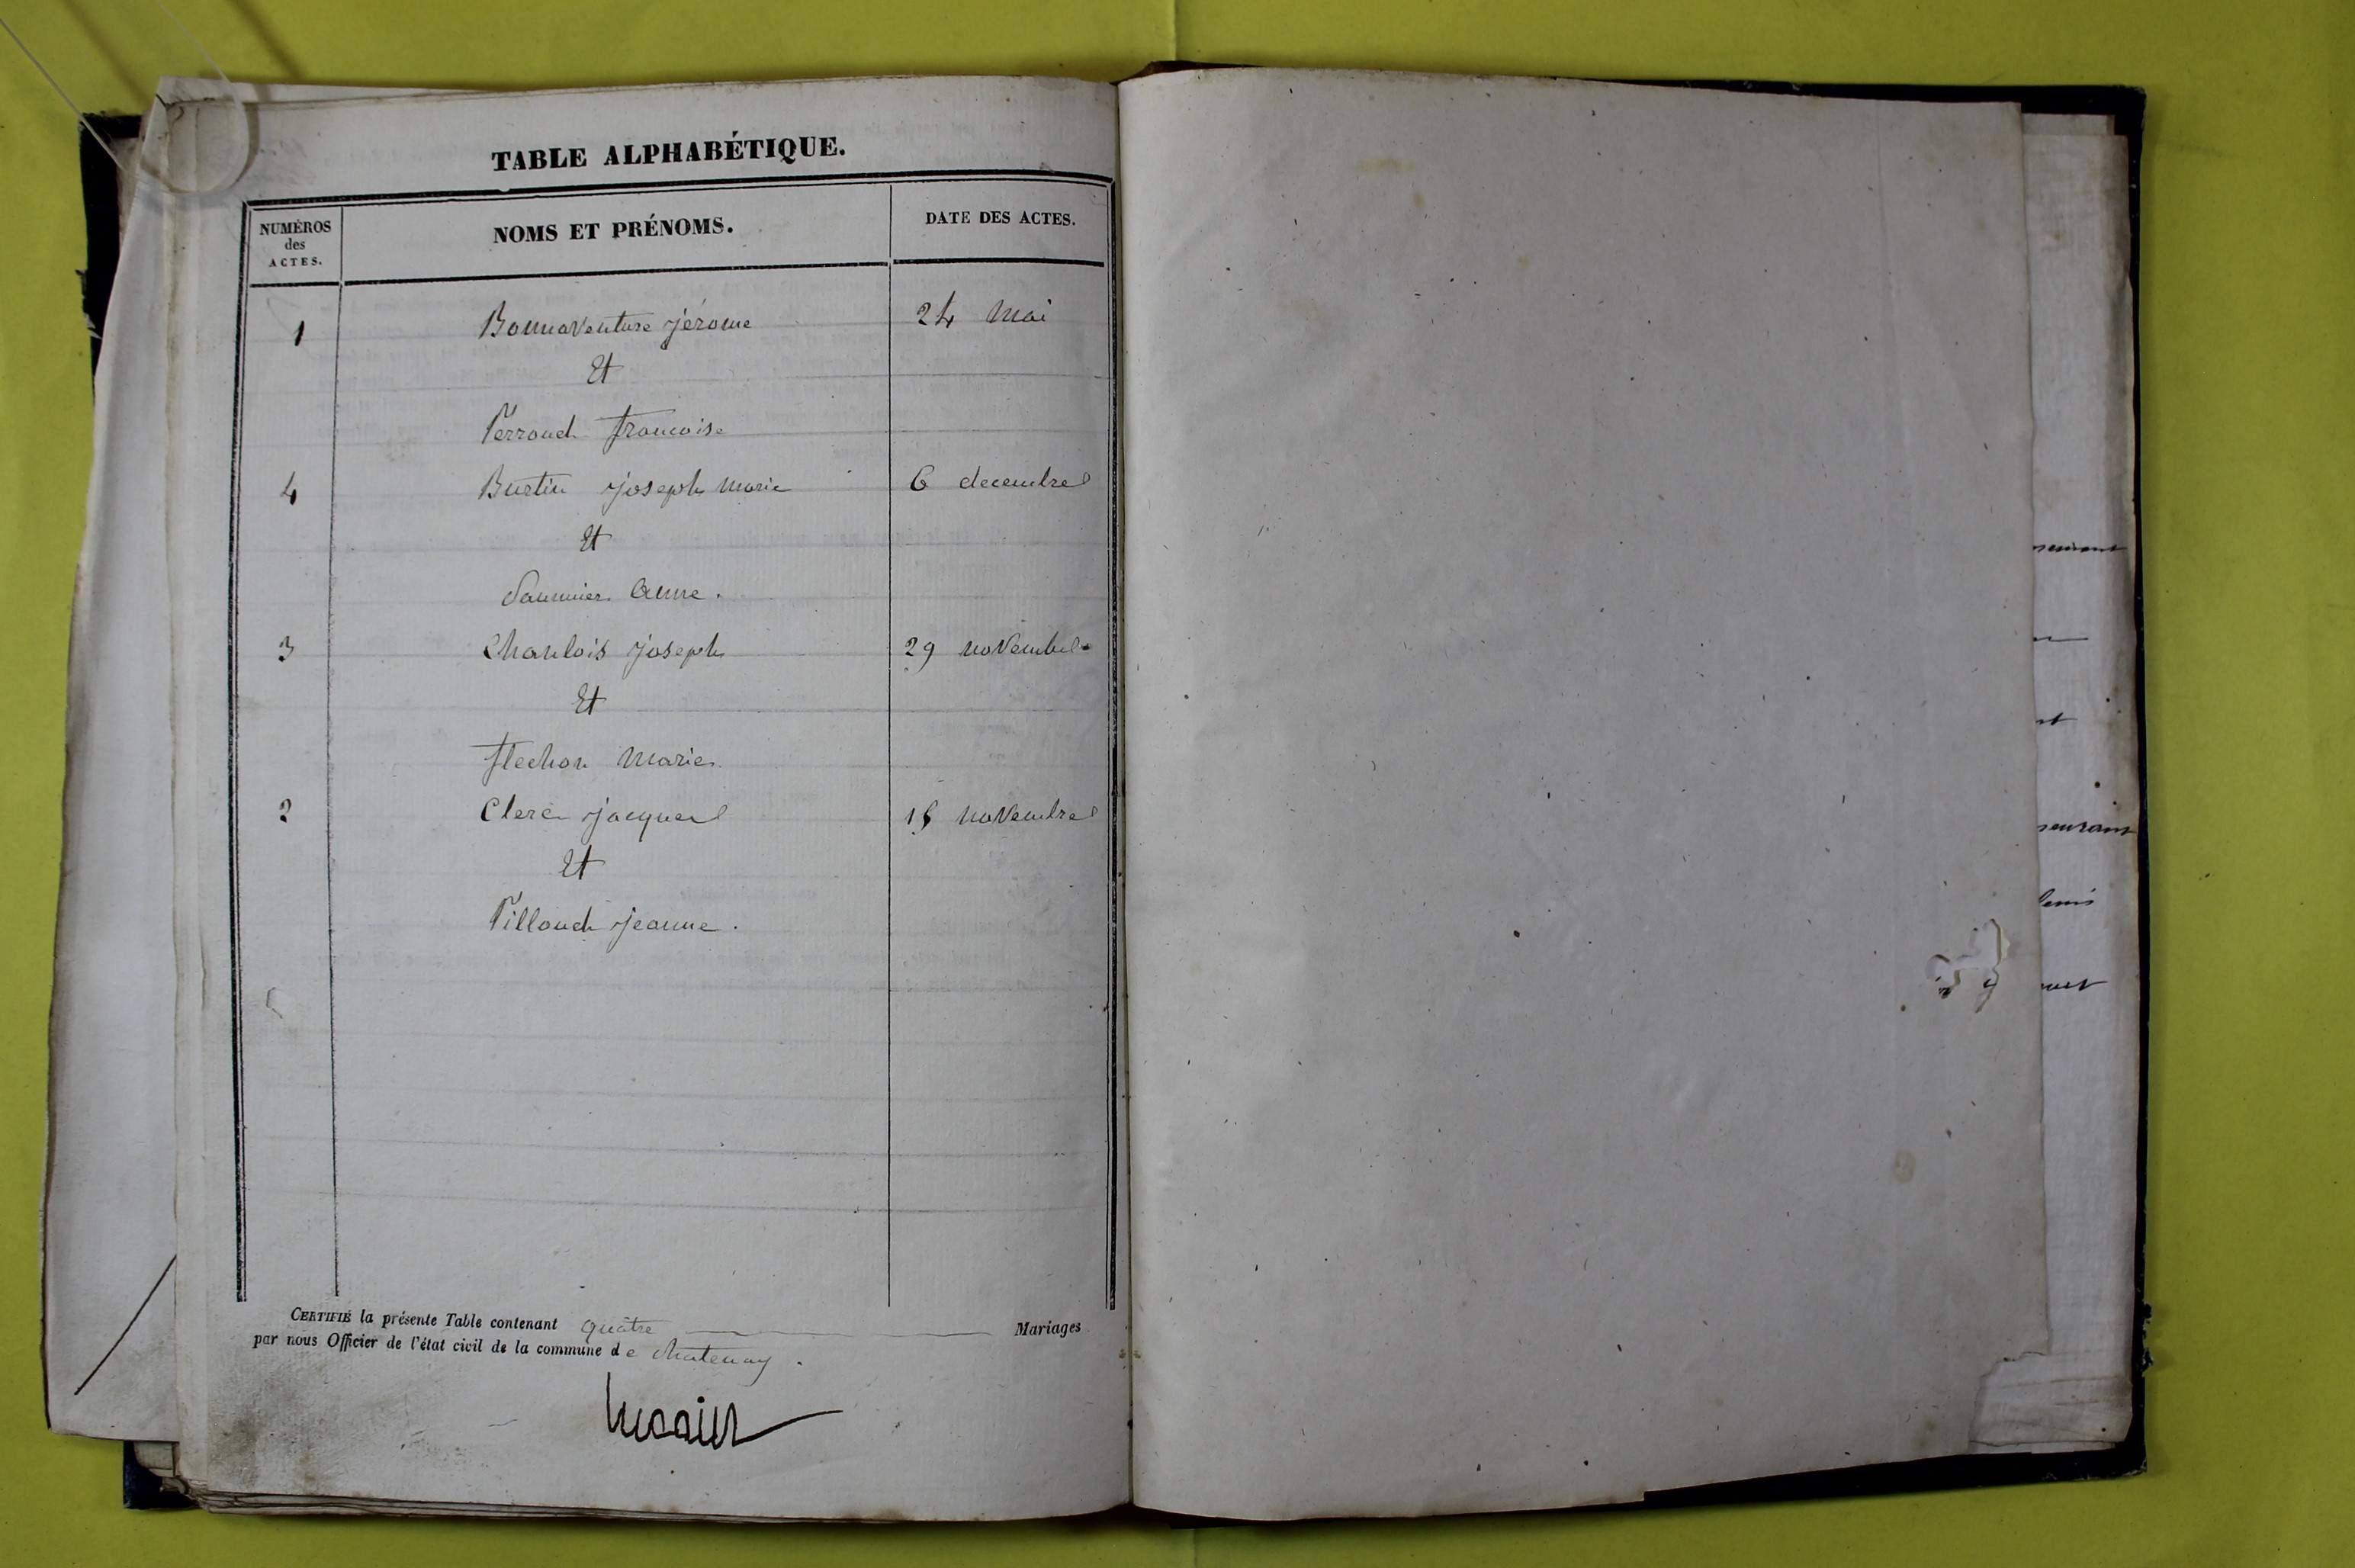 TABLE ALPHABÉTIQUE.
NUMÉROS
des
ACTES.
NOMS ET PRÉNOMS.
DATE DES ACTES.
1 Bonnaventure jérome 24 Mai
Et
Perroud francoise
4 Burtin joseph Marie 6 decembre
Et
Saunnier Anne.
3 Chanlois joseph 29 novembre
Et
flechon Marie
2 Clerc jacques 15 novembre
Et
Pilloud jeanne.
CERTIFIÉ la présente Table contenant quatre Mariages
par nous Officier de l'état civil de la commune de chatenay.